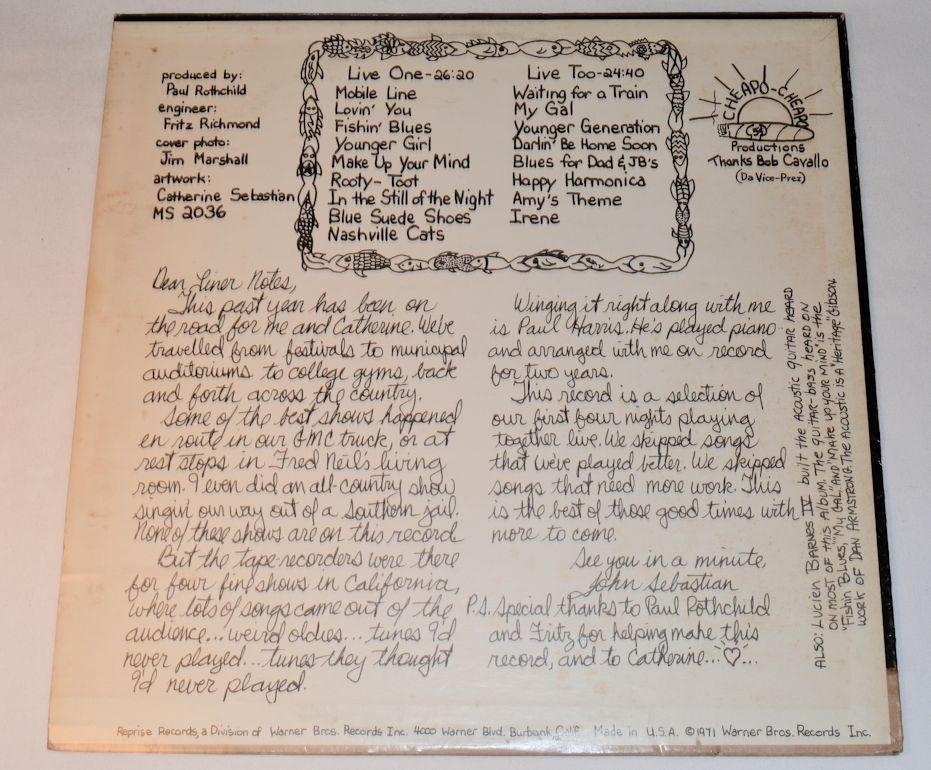 produced by:
Paul Rothchild
engineer:
Fritz Richmond
cover photo:
Jim Marshall
artwork:
Catherine Sebastian
MS 2036
Live One-26:20
Mobile Line
Lovin' You
Fishin' Blues
Younger Girl
Make Up Your Mind
Rooty-Toot
In the Still of the Night
Blue Suede Shoes
Nashville Cats
Live Too-24:40
Waiting for a Train
My Gal
Younger Generation
Darlin' Be Home Soon
Blues for Dad & JB's
Happy Harmonica
Amy's Theme
Irene
CHEAPO-CHEAPO
Productions
Thanks Bob Cavallo
(Da Vice-Prez)
Dear Liner Notes,
This past year has been on
the road for me and Catherine. We've
travelled from festivals to municipal
auditoriums to college gyms, back
and forth across the country.
Some of the best shows happened
en route in our GMC truck, or at
rest stops in Fred Neil's living
room. I even did an all-country show
singin' our way out of a Southern jail.
None of these shows are on this record.
But the tape-recorders were there
for four fine shows in California,
where lots of songs came out of the
audience...weird oldies...tunes I'd
never played...tunes they thought
I'd never played.
Winging it right along with me
is Paul Harris. He's played piano
and arranged with me on record
for two years.
This record is a selection of
our first four nights playing
together live. We skipped songs
that we've played better. We skipped
songs that need more work. This
is the best of those good times with
more to come.
See you in a minute,
John Sebastian
P.S. Special thanks to Paul Rothchild
and Fritz for helping make this
record, and to Catherine...♡...
ALSO: LUCIEN BARNES IV built the ACOUSTIC guitar HEARD
ON MOST OF THIS ALBUM. THE GUITAR-BASS HEARD ON
"FISHIN' BLUES," "MY GAL," AND "MAKE UP YOUR MIND" IS THE
WORK OF DAN ARMSTRONG. THE ACOUSTIC IS A "HERITAGE" GIBSON.
Reprise Records, a Division of Warner Bros. Records Inc. 4000 Warner Blvd. Burbank, Calif. Made in U.S.A. ©1971 Warner Bros. Records Inc.